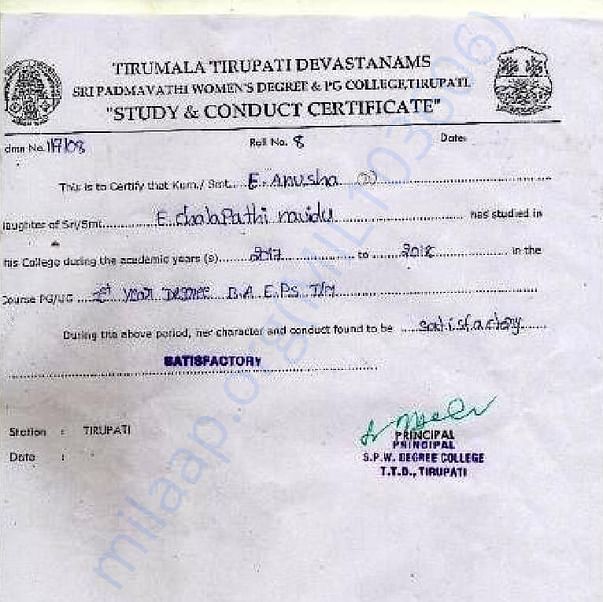 TIRUMALA TIRUPATI DEVASTANAMS
SRI PADMAVATHI WOMEN'S DEGREE & PG COLLEGE,TIRUPATI.
"STUDY & CONDUCT CERTIFICATE"
dmn No. 117/08 Roll No. 8 Date:
This is to Certify that Kum./ Smt. E. Anusha
aughter of Sri/Smt. E. chalapathi naidu has studied in
his College during the academic years (s) 2017 to 2018 in the
Course PG/UG year Degree B.A E.P.S T/M
During the above period, her character and conduct found to be satisfactory
SATISFACTORY
Station : TIRUPATI
Date :
PRINCIPAL
PRINCIPAL
S.P.W. DEGREE COLLEGE
T.T.D., TIRUPATI
milaap.org(MIL103606)